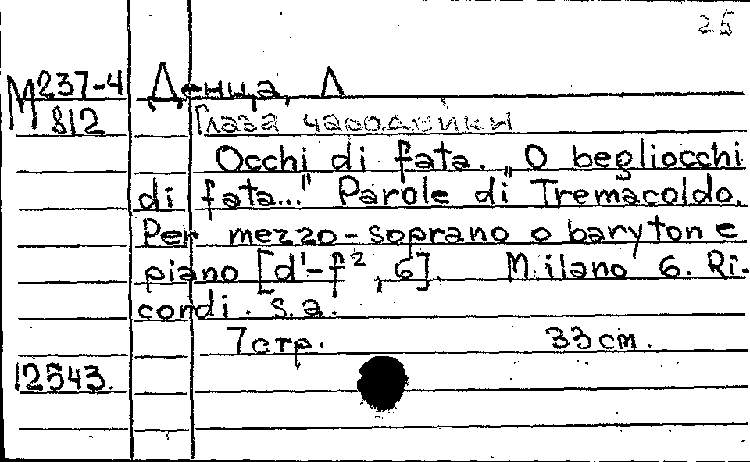 25
М 237-4 Денца, Л
812 Глаза чародейки
Occhi di fata. "O begliocchi
di fata..." Parole di Tremacoldo.
Per mezzo-soprano o barytone
piano [d¹-f², G]. Milano G. Ri-
cordi. s.a.
7 стр. 33 cm.
12543.